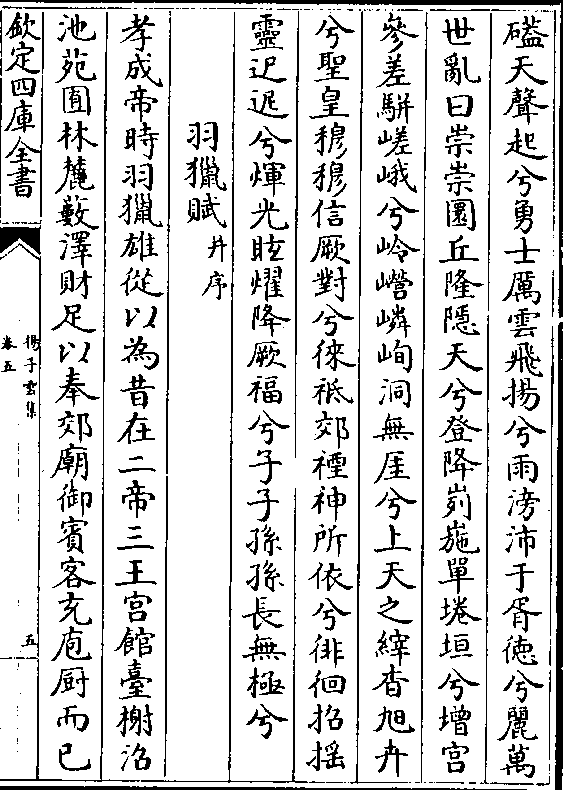 礚天聲起兮勇士厲雲飛揚兮雨滂沛于胥徳兮麗萬
世亂曰崇崇圜丘隆隠天兮登降峛崺單埢垣兮增宫
參差駢嵯峨兮岭巆嶙峋洞無厓兮上天之縡杳旭卉
兮聖皇穆穆信厥對兮徠祗郊禋神所依兮徘徊招揺
靈迟迡兮煇光眩燿降厥福兮子子孫孫長無極兮
羽獵賦并序
孝成帝時羽獵雄從以為昔在二帝三王宫館臺榭沼
池苑囿林麓藪澤財足以奉郊廟御賓客充庖厨而已
欽定四庫全書
揚子雲集
卷五
五